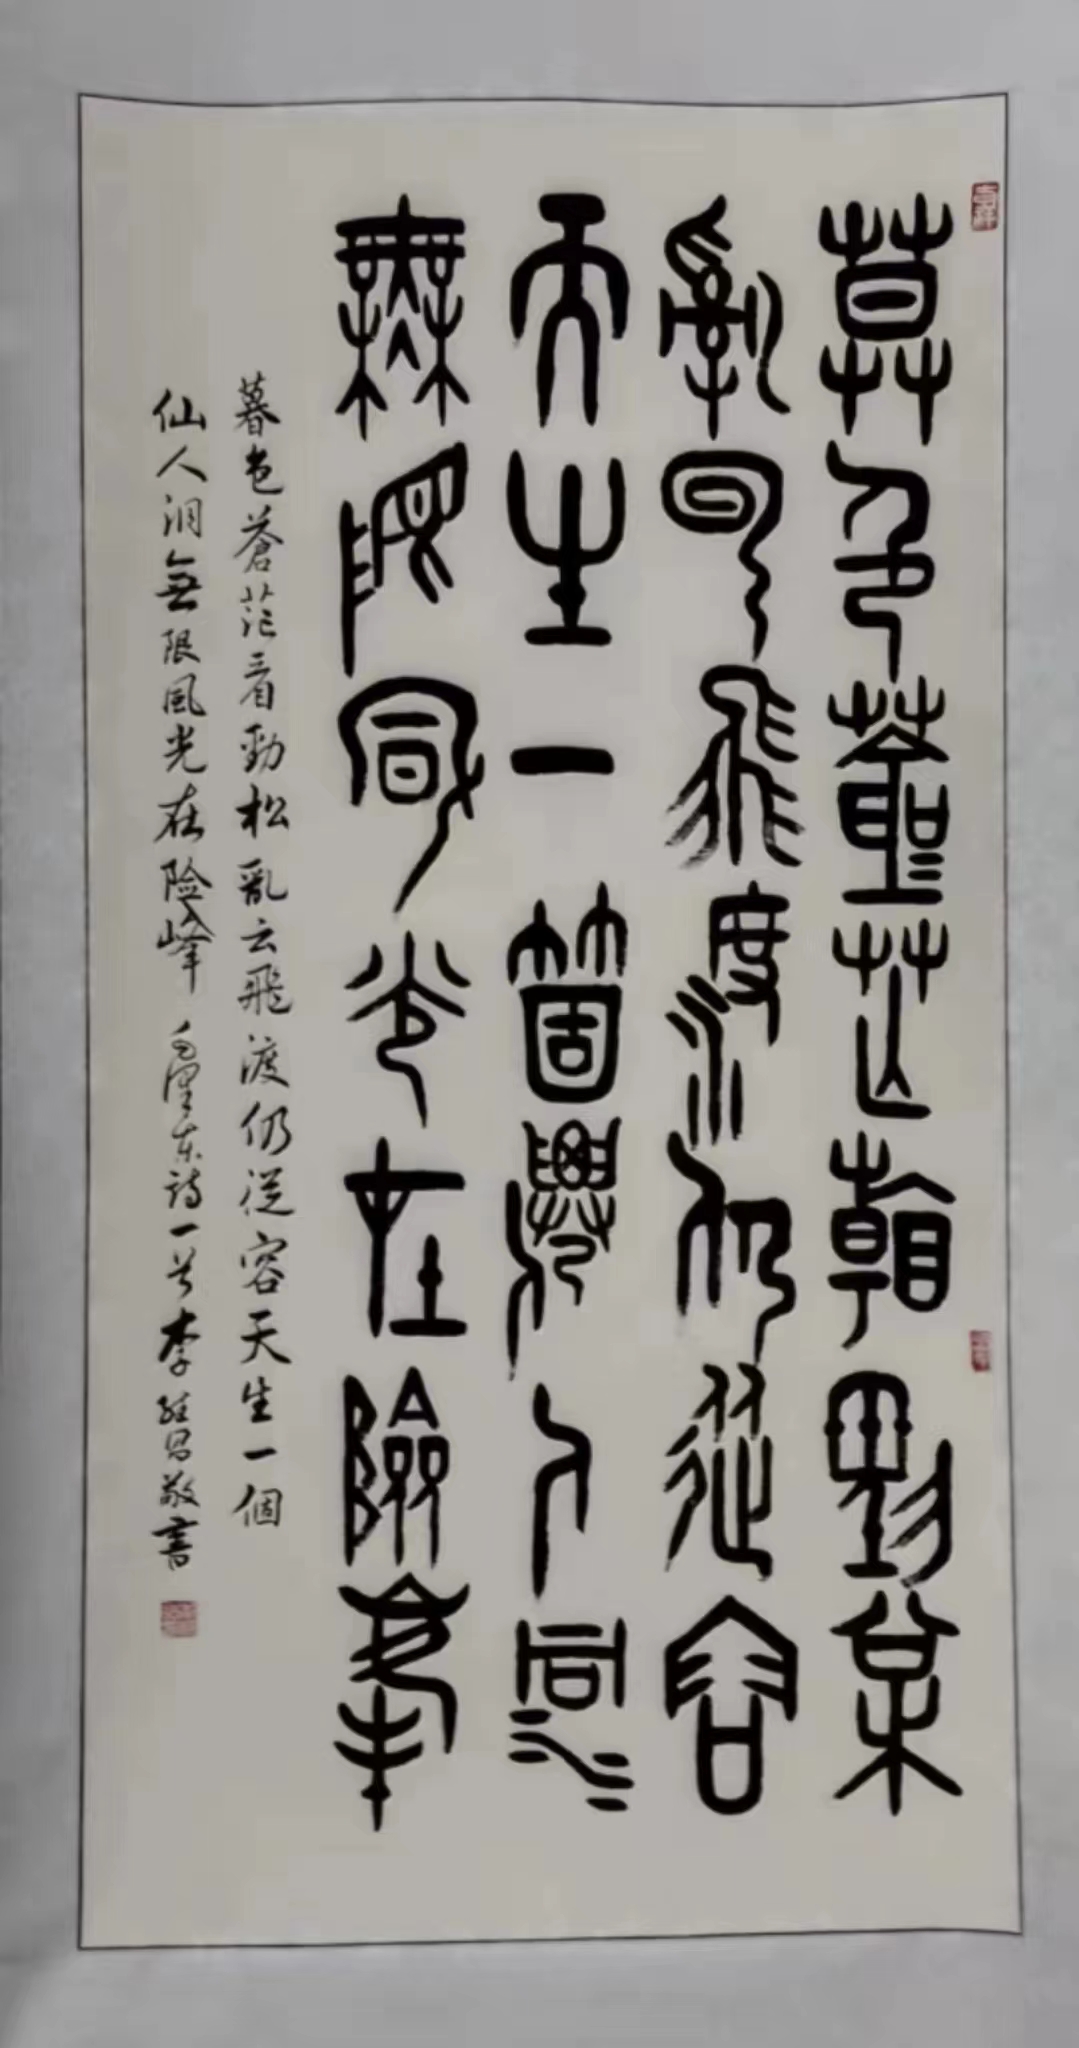 暮色蒼茫看勁松
亂雲飛渡仍從容
天生一箇僊人洞
無限風光在險峰
暮色蒼茫看勁松亂云飛渡仍從容天生一個
仙人洞無限風光在险峰 毛澤東詩一首 李 昌敬書